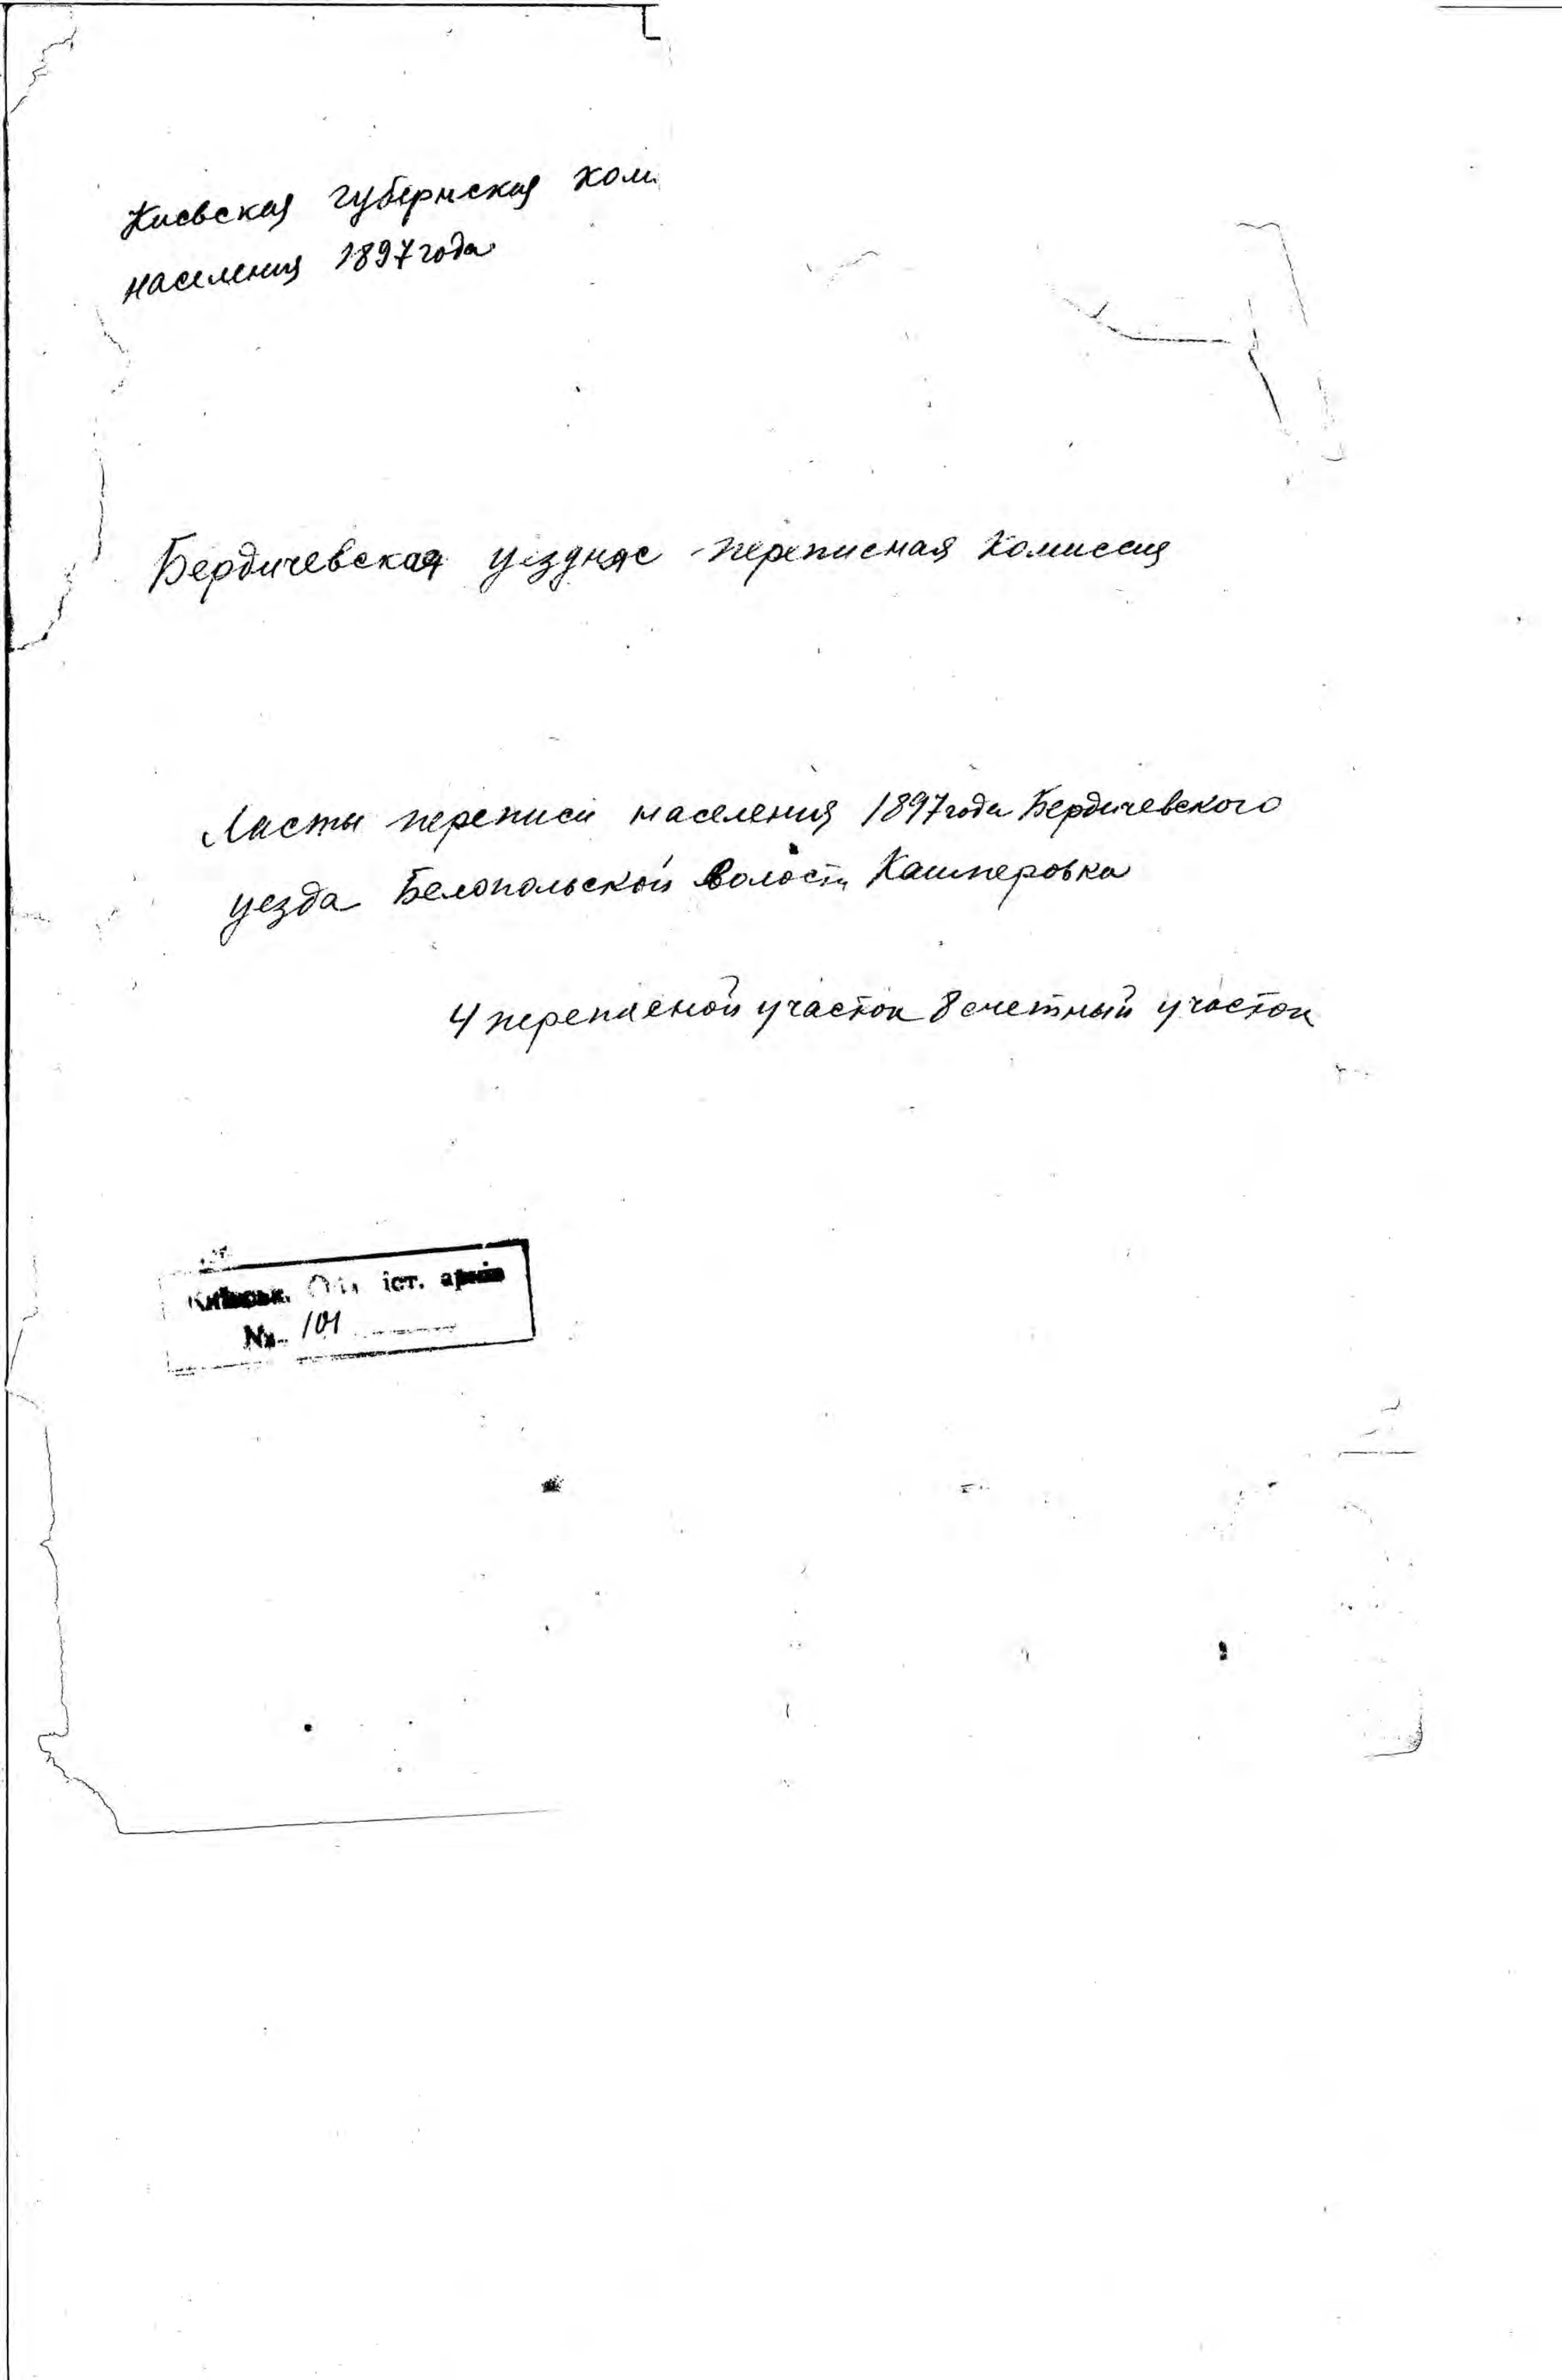 Киевская губернская ком
населения 1897 года
Бердичевская уездная переписная комиссия
Листы переписи населения 1897 года Бердичевского
уезда Белопольской волости Кашперовка
4 переписной участок 8 счетный участок
іст. архів
№ 101